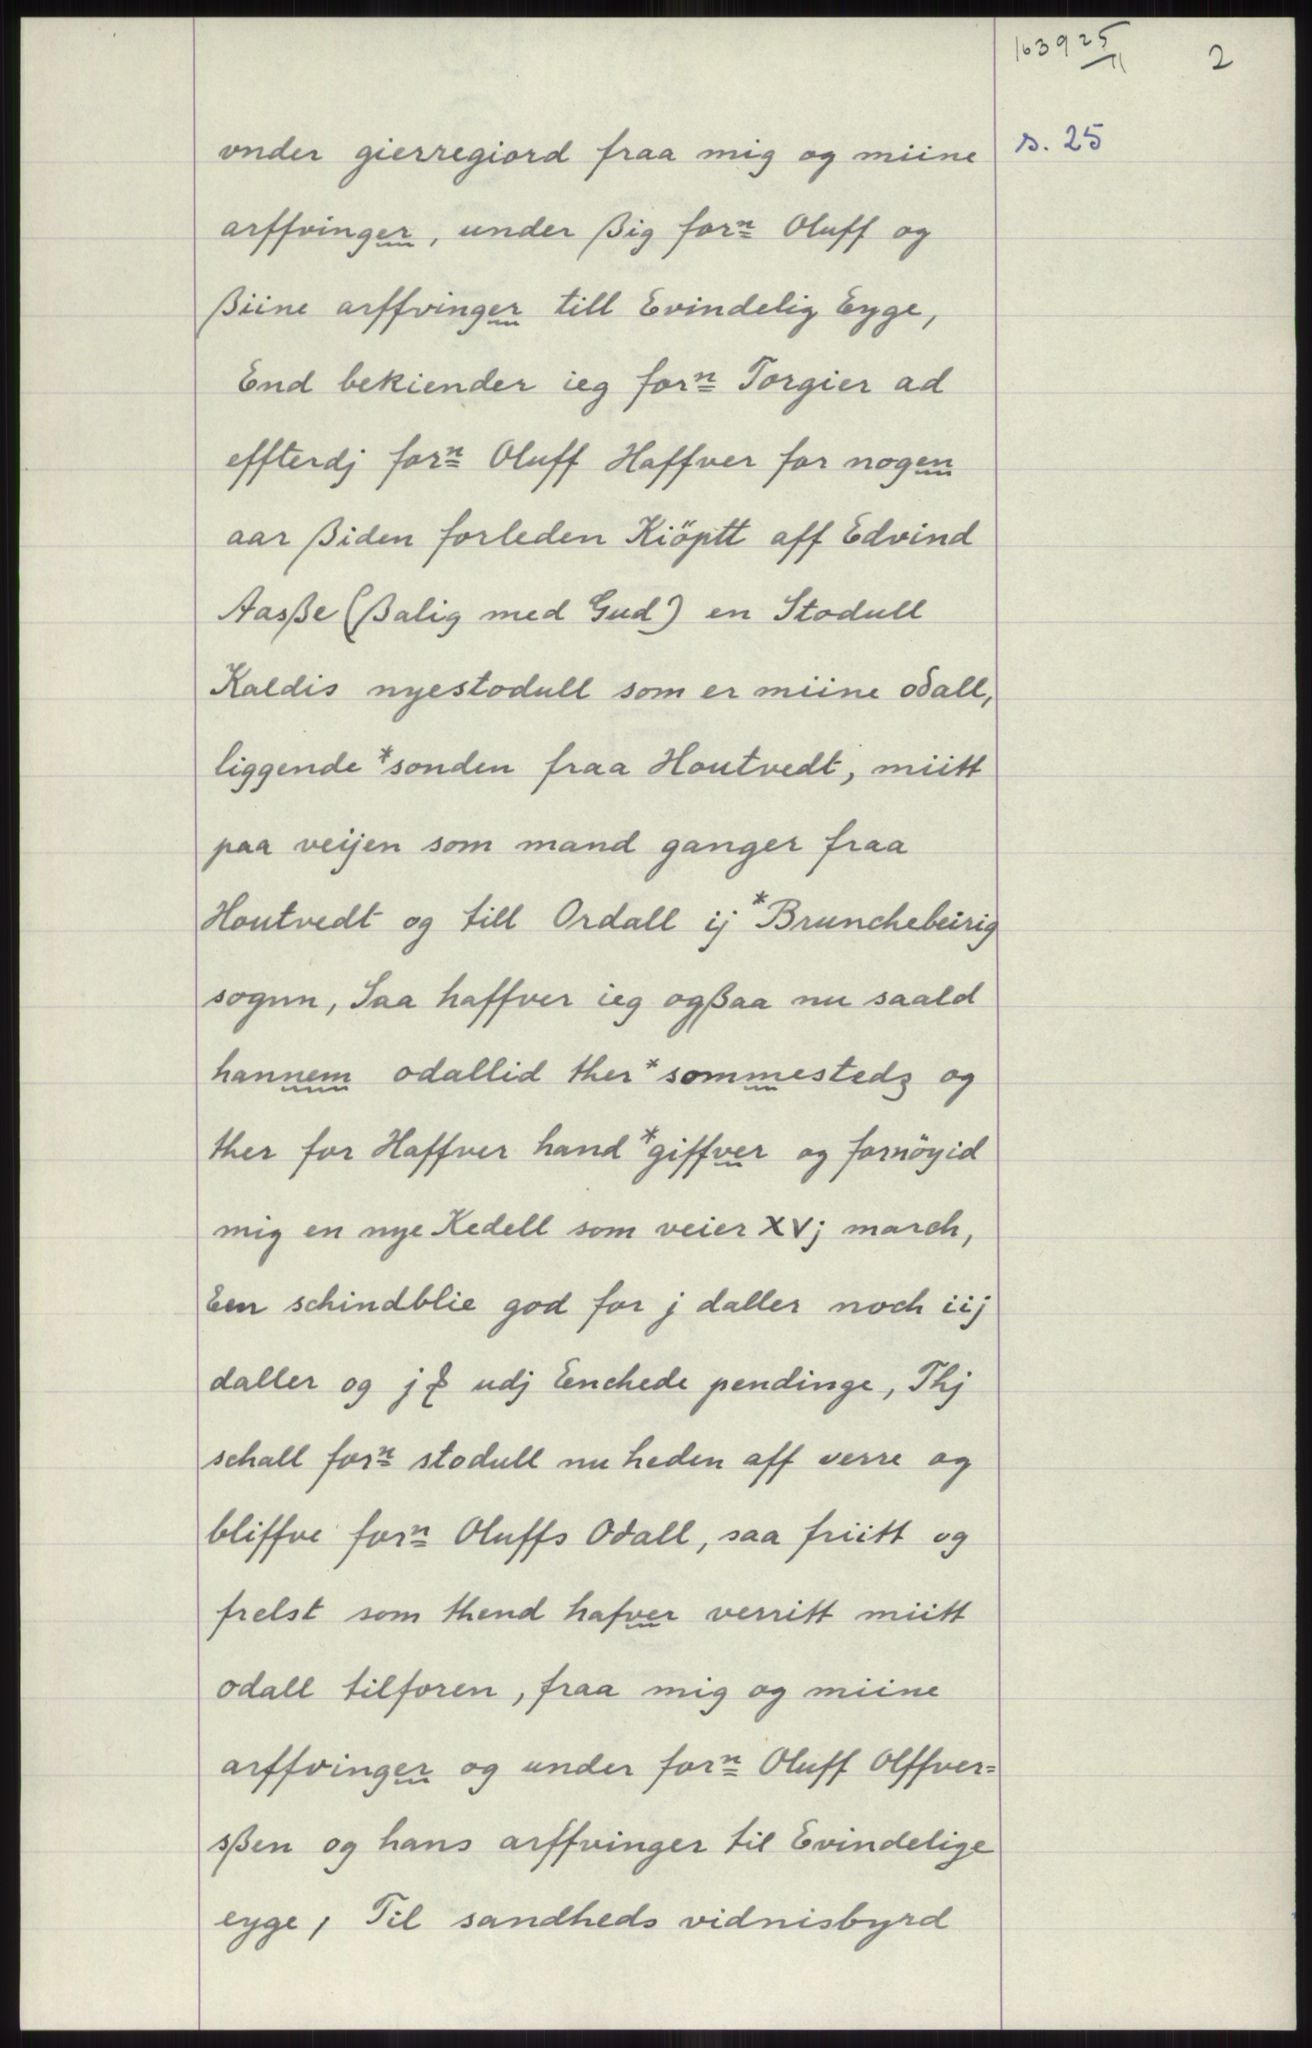 1639 25/11
2
s. 25
vnder gierregiord fraa mig og miine
arffvinger, under ßig forn Oluff og
ßiine arffvinger till Evindelig Eyge,
End bekiender ieg forn Torgier ad
effterdj forn Oluff Haffver for nogen
aar ßiden forleden Kiöptt aff Edvind
Aasße (ßalig med Gud) en Stodull
Kaldis nyestodull som er miine odall,
liggende *sonden fraa Houtvedt, miitt
paa veijen som mand ganger fraa
Houtvedt og till Ordall ij *Brunchebeirig
sognn, Saa haffver ieg ogßaa nu saald
hannem odallid ther *sommestedz og
ther for Haffver hand *giffver og fornöyid
mig en nye Kedell som veier xvj march,
Een schindblie god for j daller noch iij
daller og j udj Enchede pendinge, Thj
schall forn stodull nu heden aff verre og
bliffve forn Oluffs Odall, saa friitt og
frelst som thend hafver verritt miitt
odall tilforen, fraa mig og miine
arffvinger og under forn Oluff Olffver=
sßen og hans arffvinger til Evindelige
eyge, Til sandheds vidnisbyrd